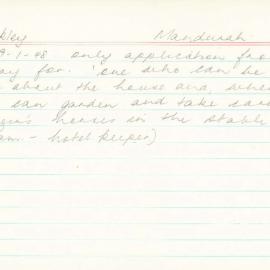 kley Mandurah
9-1-98 only application fro
ay for. 'one who can be
about the house and, whe
can garden and take car
horses in the stable
am. - hotel keeper)